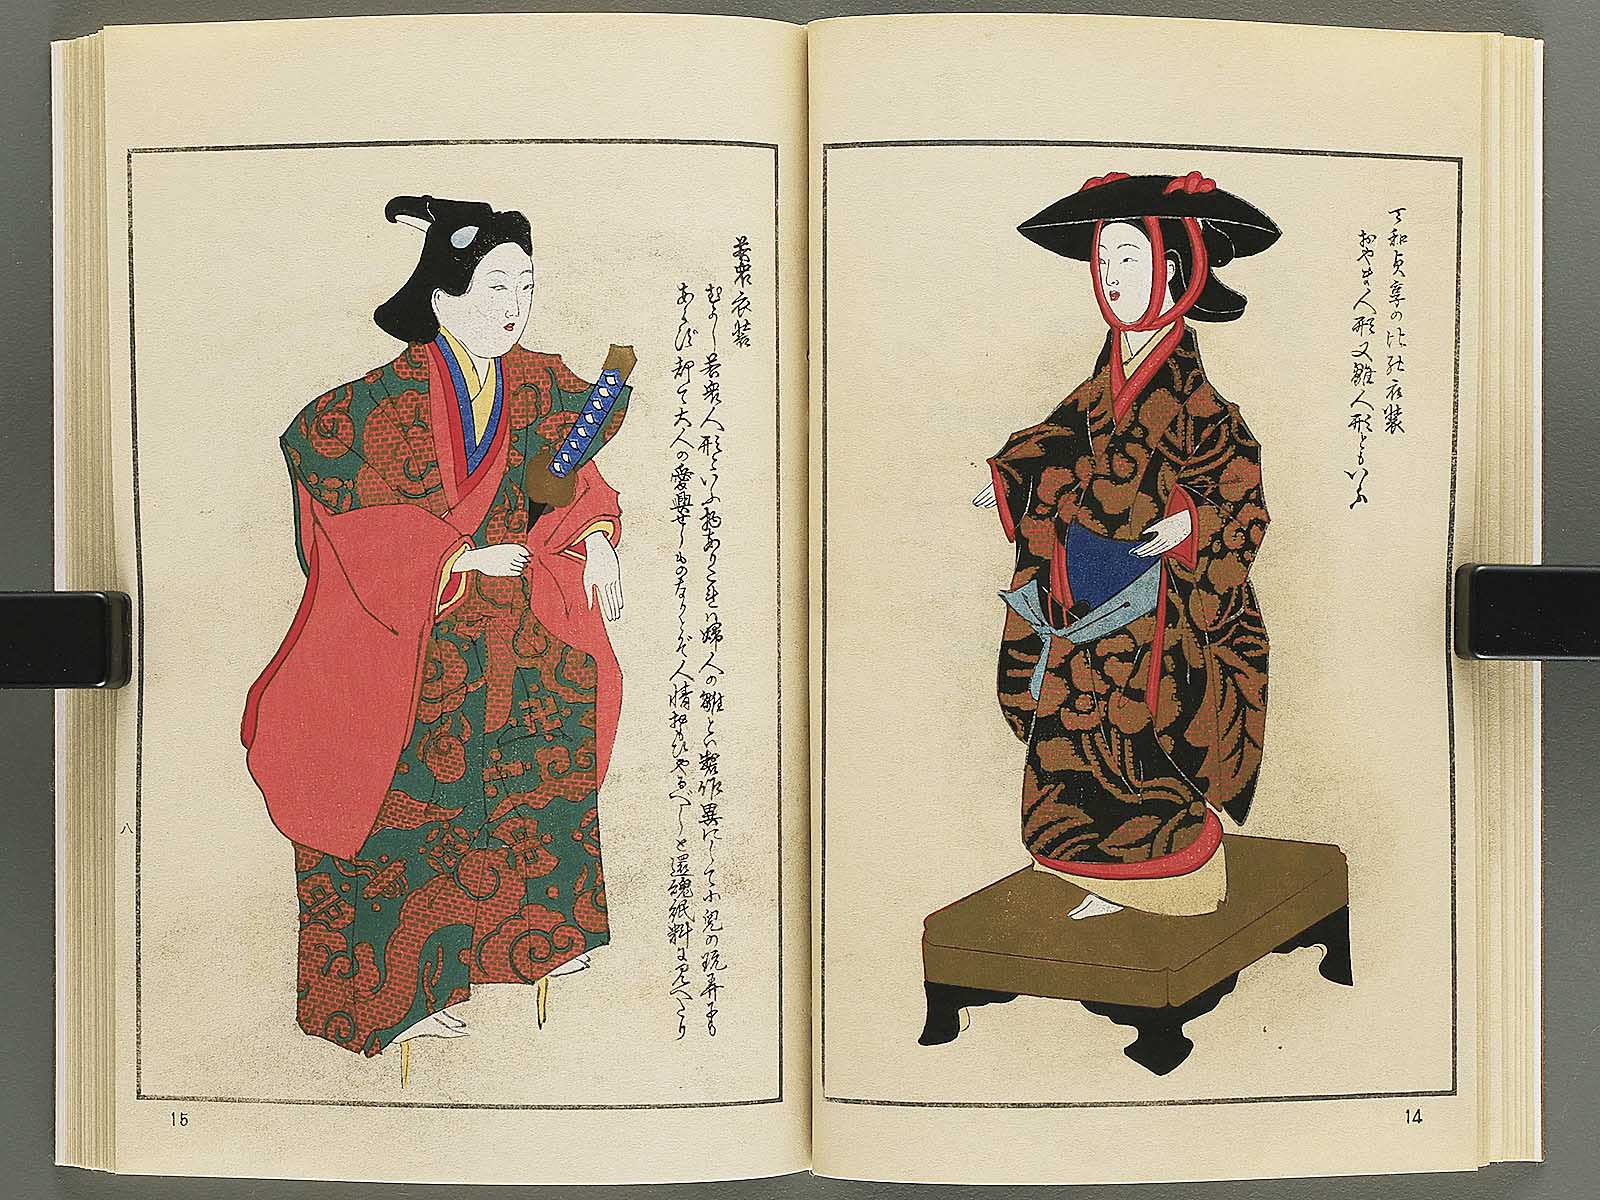 天和貞享の比の衣装
おやま人形又雛人形ともいふ
14
若衆衣装
むかし若衆人形といふ物ありこれは婦人の雛とは製作異にして小児の玩弄にも
あらず却て大人の愛興せしものなりとぞ人情おもひやるべしと還魂紙料に見へたり
八
15